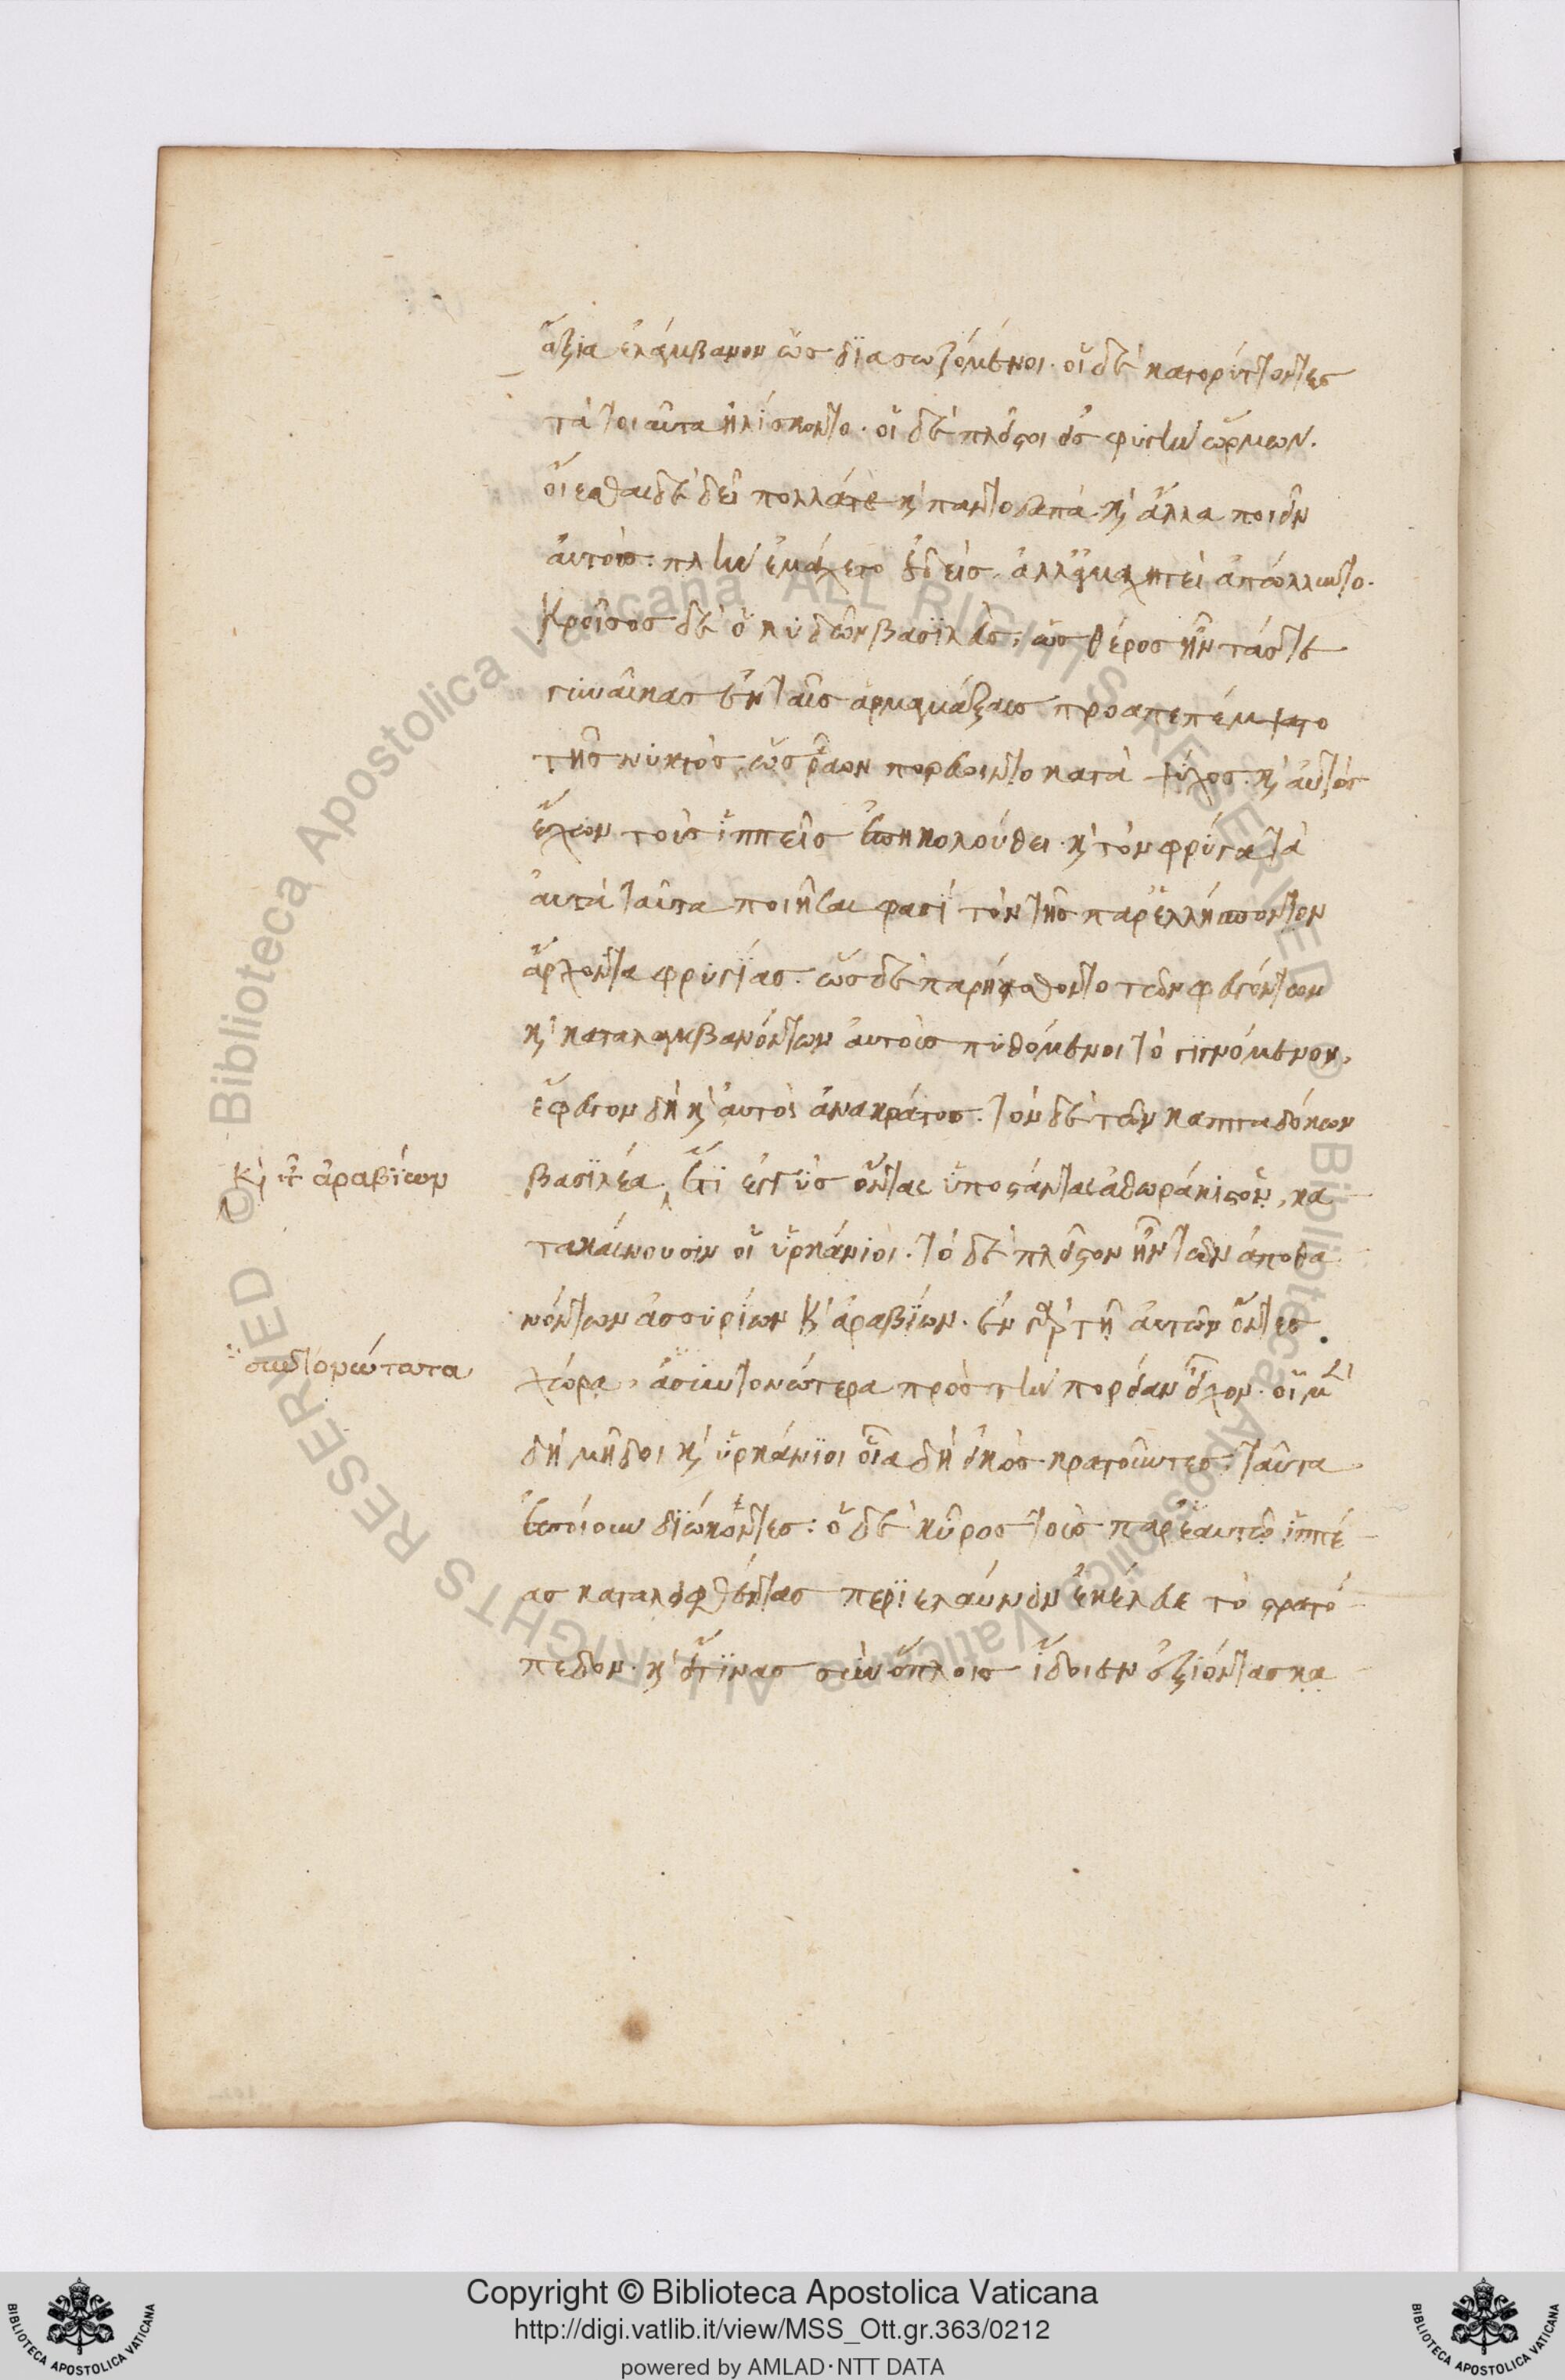 ἄξια ἐλάμβανον ὡς διασωζόμενοι. οἱ δὲ κατορύττοντες
τὰ τοιαῦτα ἡλίσκοντο. οἱ δὲ πλεῖστοι εἰς φυγὴν ὥρμων.
οἴεσθαι δὲ δεῖ πολλά τε καὶ παντοδαπὰ καὶ ἄλλα ποιεῖν
αὐτούς. πλὴν ἐμάχετο οὐδείς. ἀλλ' ἀμαχητεὶ ἀπώλλυντο.
Κροῖσος δὲ ὁ λυδῶν βασιλεὺς, ὡς θέρος ἦν τάς τε
γυναῖκας ἐν ταῖς ἁρμαμάξαις προαπεπέμψατο
τῆς νυκτός, ὡς ῥᾷον πορεύοιντο κατὰ ψύχος. καὶ αὐτὸς
ἔχων τοὺς ἱππεῖς ἐπηκολούθει. καὶ τὸν φρύγα τὰ
αὐτὰ ταῦτα ποιῆσαι φασὶ τὸν τῆς παρ' ἑλλήσποντον
ἄρχοντα φρυγίας. ὡς δὲ παρῄσθοντο τῶν φευγόντων
καὶ καταλαμβανόντων αὐτοὺς πυθόμενοι τὸ γιγνόμενον,
ἔφευγον δὴ καὶ αὐτοὶ ἀνακράτος. τὸν δὲ τῶν καππαδόκων
καὶ τὸν ἀραβίων
βασιλέα, ἔτι ἐγγὺς ὄντας ὑποστάντας ἀθωρακίστους, κα
τακαίνουσιν οἱ ὑρκάνιοι. τὸ δὲ πλεῖστον ἦν τῶν ἀποθα
νόντων ἀσσυρίων καὶ ἀραβίων. ἐν γὰρ τῇ αὐτῶν ὄντες
συντονώτατα
χώρα, ἀσυντονώτερα πρὸς τὴν πορείαν εἶχον. οἱ μὲν
δὴ μῆδοι καὶ ὑρκάνιοι οἷα δὴ εἰκὸς κρατοῦντες, ταῦτα
ἐποίουν διώκοντες: ὁ δὲ κῦρος τοὺς παρ' ἑαυτῷ ἱππέ
ας καταλειφθέντας περιελαύνειν ἐκέλευε τὸ στρατό
πεδον. καὶ εἴ τινας σὺν ὅπλοις ἴδοιεν ἐξιόντας κα
Copyright © Biblioteca Apostolica Vaticana
http://digi.vatlib.it/view/MSS_Ott.gr.363/0212
powered by AMLAD·NTT DATA